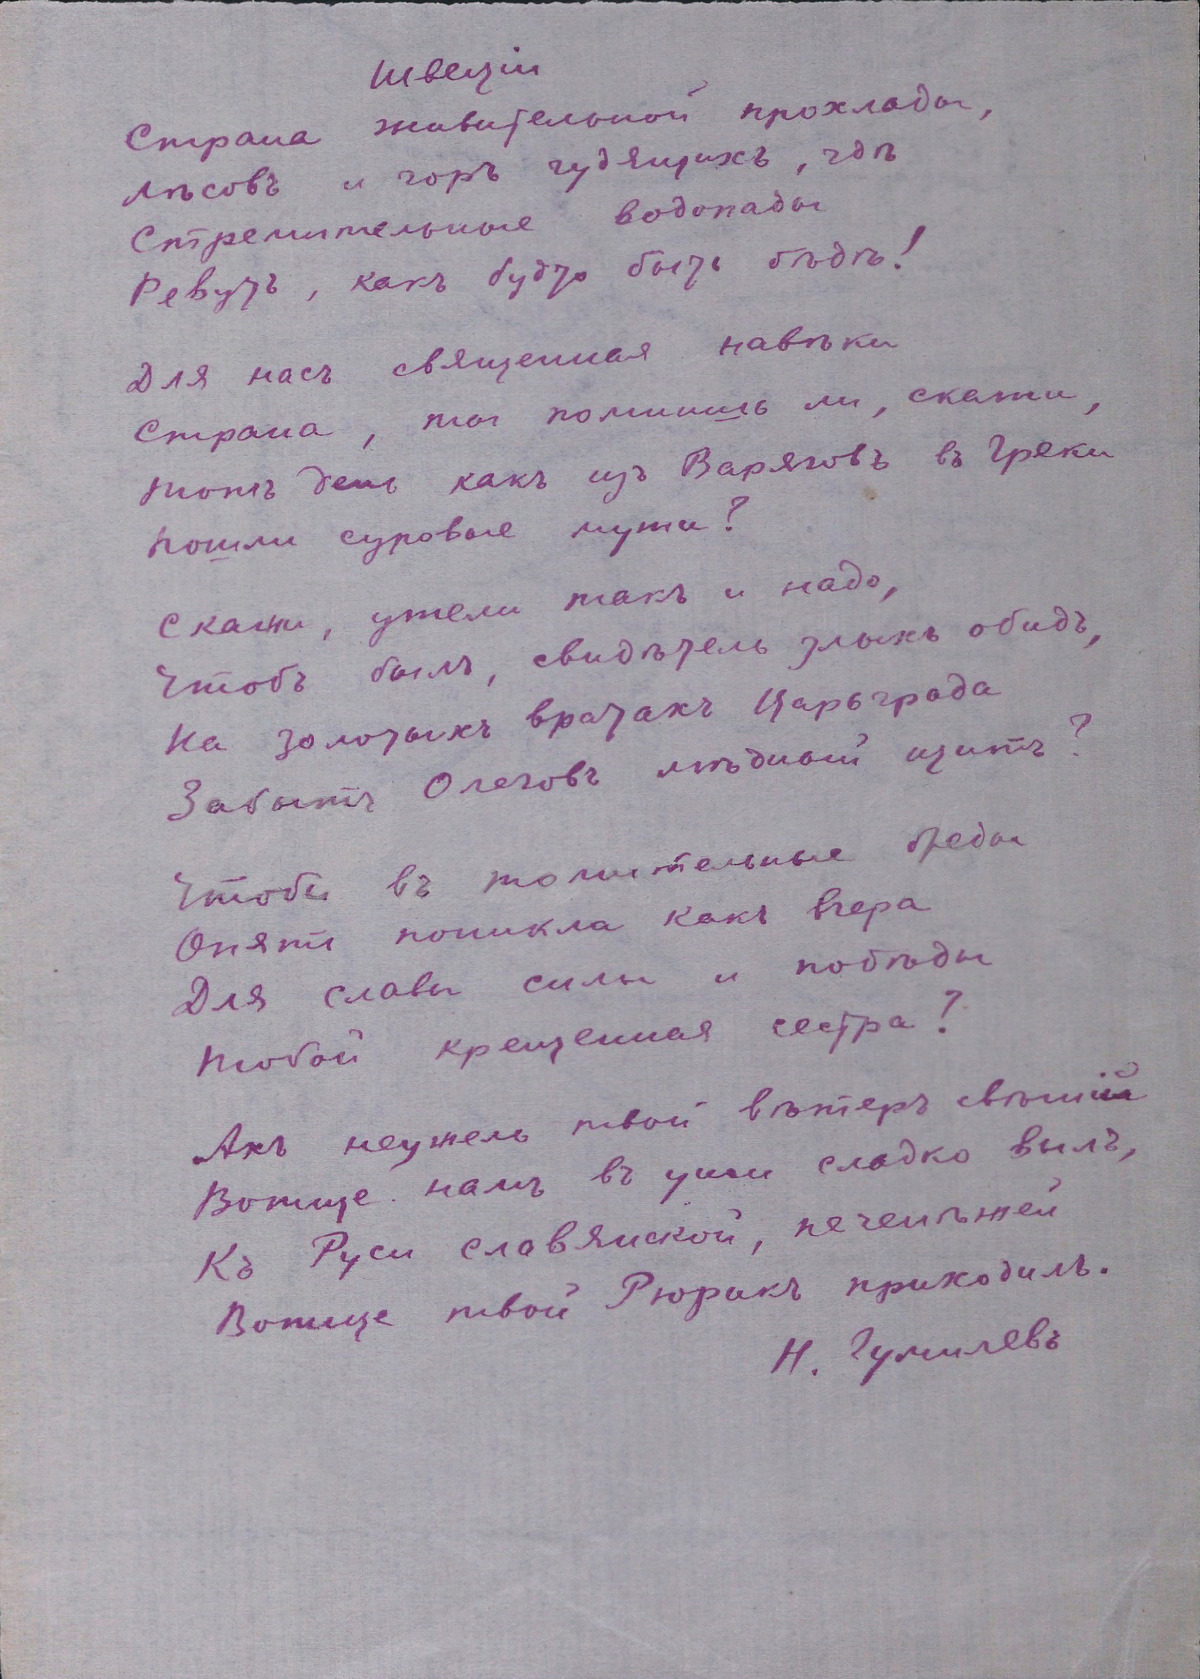 Швеціи
Страна живительной прохлады,
Лѣсовъ и горъ гудящихъ, гдѣ
Стремительные водопады
Ревутъ, какъ будто быть бѣдѣ!
Для насъ священная навѣки
Страна, ты помнишь ли, скажи,
Тотъ день какъ изъ Варяговъ въ Греки
Пошли суровые мужи?
Скажи, ужели такъ и надо,
Чтобъ былъ, свидѣтель злыхъ обидъ,
На золотыхъ вратахъ Царьграда
Забытъ Олеговъ мѣдный щитъ?
Чтобы въ томительные бреды
Опять поникла какъ вчера
Для славы силы и побѣды
Тобой крещенная сестра?
Ахъ неужель твой вѣтеръ свѣжій
Вотще намъ въ уши сладко вылъ,
Къ Руси славянской, печенѣжей
Вотще твой Рюрикъ приходилъ.
Н. Гумилевъ